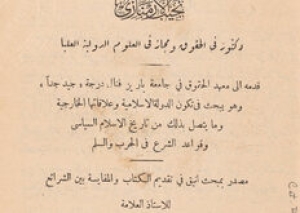 نجيب الأرمنازي
دكتور في الحقوق ومجاز في العلوم الدولية العليا
قدمه الى معهد الحقوق في جامعة باريز فنال درجة « جيد جداً »
وهو يبحث في تكون الدولة الاسلامية وعلاقاتها الخارجية
وما يتصل بذلك من تاريخ الاسلام السياسي
وقواعد الشرع في الحرب والسلم
مصدر ببحث أنيق في تقديم الكتاب والمقايسة بين الشرائع
للاستاذ العلامة